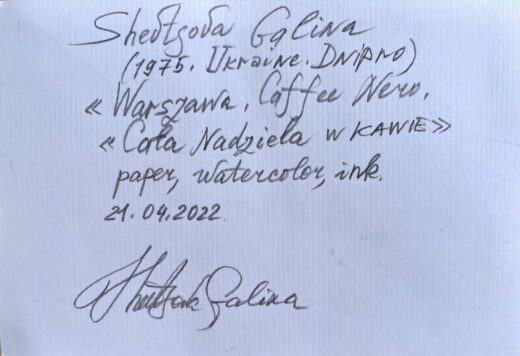 Shevtsova Galina
(1975. Ukraine. Dnipro)
« Warszawa. Caffee Nero.
« Cała Nadziela w KAWIE»
paper, watercolor, ink.
21.04.2022
Shevtsova Galina